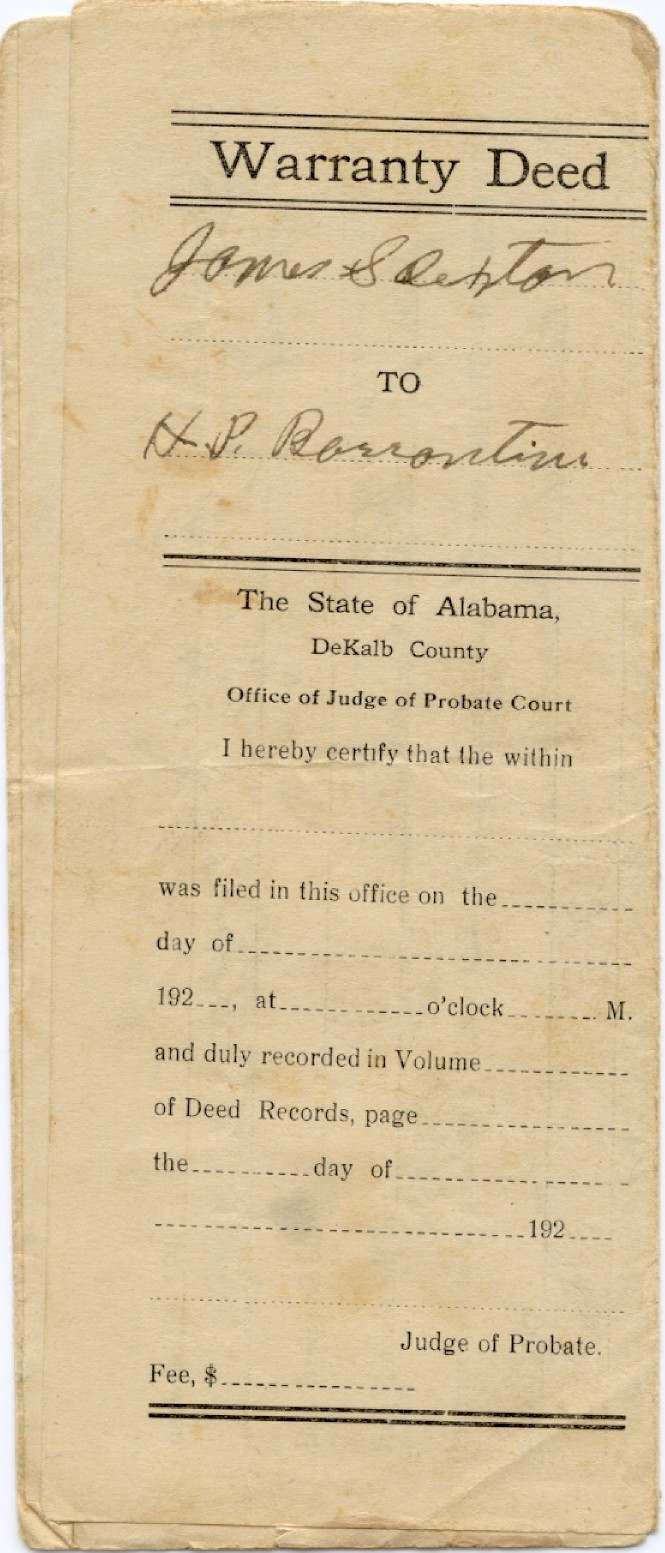 Warranty Deed
James
TO
H. P. Barrontine
The State of Alabama,
DeKalb County
Office of Judge of Probate Court
I hereby certify that the within
was filed in this office on the
day of
192 , at o'clock M.
and duly recorded in Volume
of Deed Records, page
the day of
192
Judge of Probate.
Fee, $